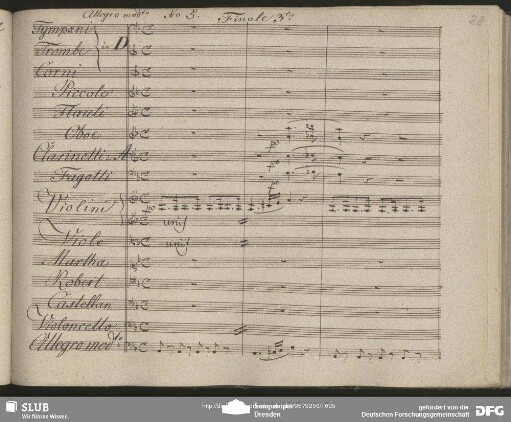 Allegro modto No 5. Finale 3tio
28
Tympani
in D
Trombe
Corni
Piccolo
Flauti
Oboe
Clarinetti A
Fagotti
Violini
unis
Viole
unis
Martha
Robert
Castellan
Violoncello
Allegro modto
SLUB
Wir führen Wissen.
Dresden
gefördert von der
Deutschen Forschungsgemeinschaft
DFG